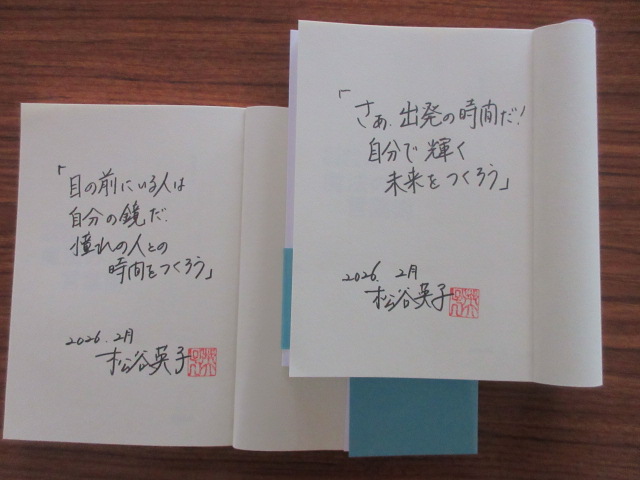 「目の前にいる人は
自分の鏡だ.
憧れの人との
時間をつくろう」
2026.2月
松谷英子
「さぁ.出発の時間だ!
自分で輝く
未来をつくろう」
2026.2月
松谷英子